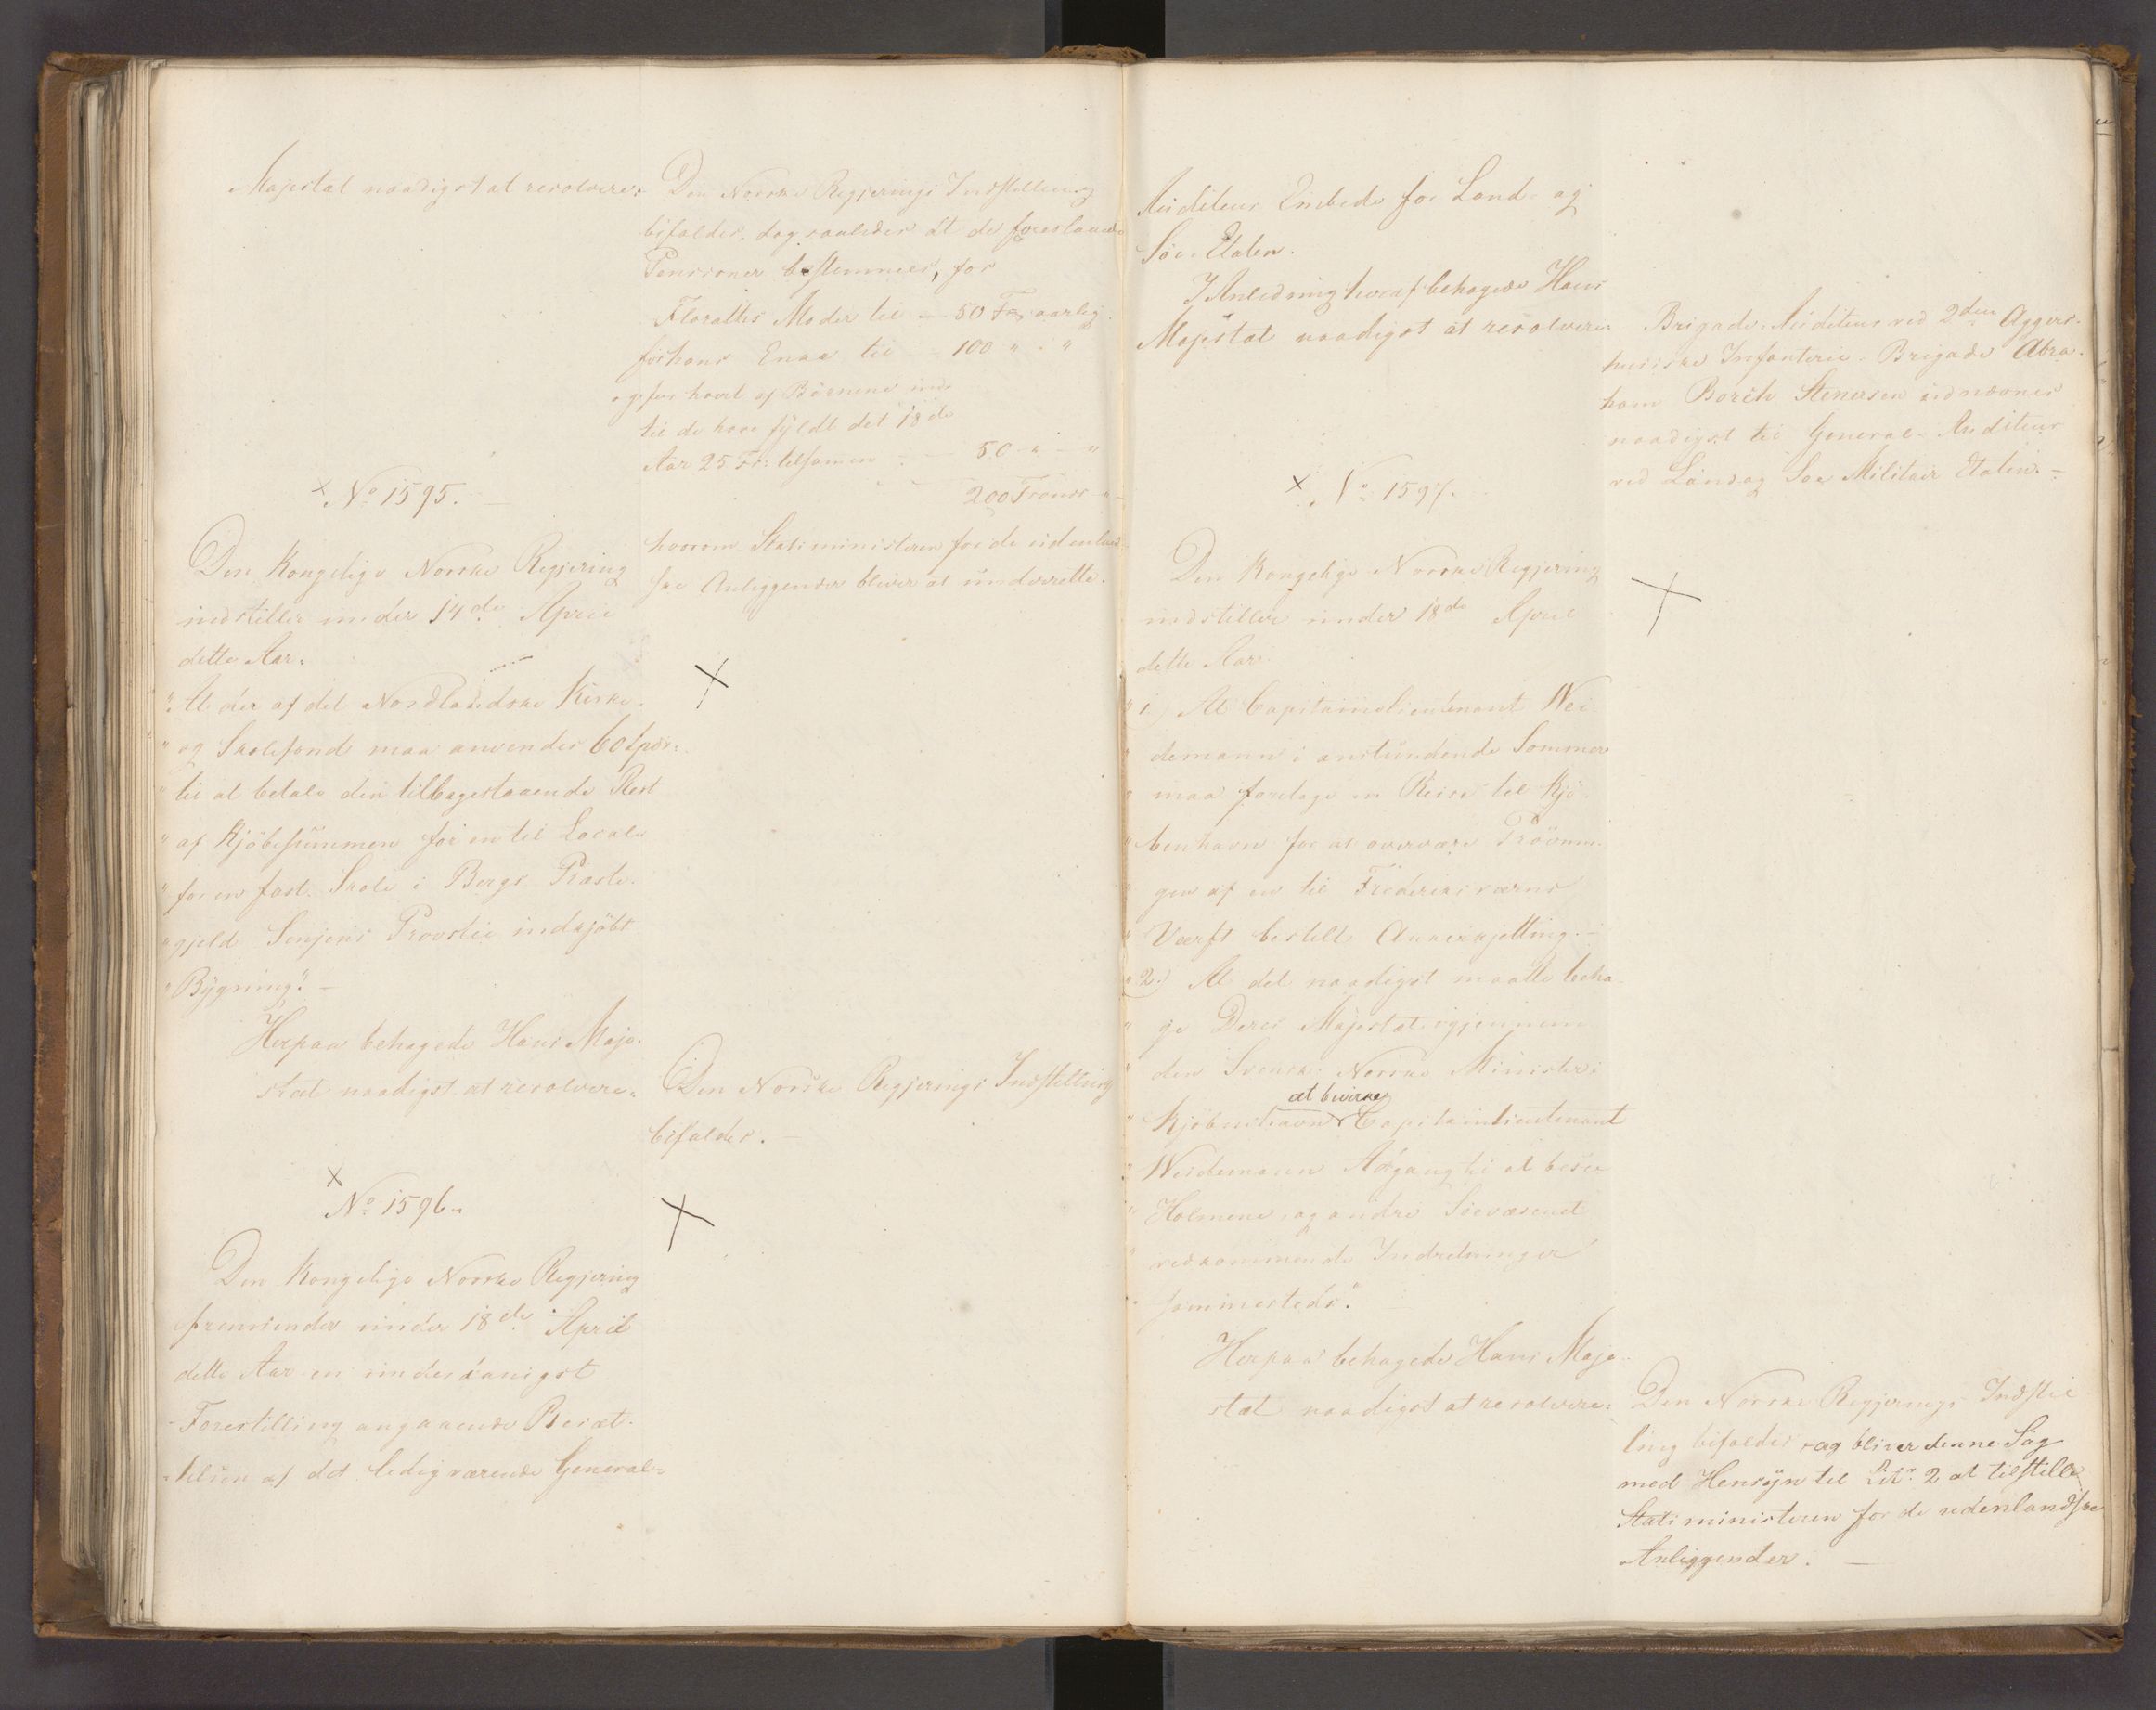 Majestæt naadigst at resolvere:
Den Norske Regjerings Indstilling
bifaldes, dog saaledes at de foreslaaede
Pensioner bestemmes, for
Floraths Moder til — 50 Frs aarlig.
for hans Enke til - 100 " - "
og for hvert af Börnene ind-
til de have fyldt det 18de
Aar 25 Fr: tilsamen - — 50 " — "
200 Francs
hvorom Statsministeren for de udenland-
ske Anliggender bliver at underrette.
× No 1595. —
Den Kongelige Norske Regjering
indstiller under 14de April
dette Aar:
"At der af det Nordlandske Kirke-
" og Skolefond maa anvendes 60 Spdr:
" til at betale den tilbagestaaende Rest
" af Kjöbesummen for en til Locale
" for en fast Skole i Bergs Præste-
" gjeld Senjens Provstie indkjöbt
" Bygning". —
Herpaa behagede Hans Maje-
stæt naadigst at resolvere:
Den Norske Regjerings Indstilling
bifaldes. —
×
No 1596.
Den Kongelige Norske Regjering
fremsender under 18de April
dette Aar en underdanigst
Forestilling angaaende Besæt-
telsen af det ledigværende General-
Auditeur Embede for Land- og
Söe-Etaten.
I Anledning heraf behagede Hans
Majestæt naadigst at resolvere:
Brigade-Auditeur ved 2den Aggers-
huusiske Infanterie-Brigade Abra-
ham Borch Stenersen udnævnes
naadigst til General-Auditeur
ved Land og Söe Militair Etaten. —
× No 1597.
Den Kongelige Norske Regjering
indstiller under 18de April
dette Aar:
" 1.) At Capitainlieutenant Wei-
" demann i anstundende Sommer
" maa foretage en Reise til Kjö-
" benhavn for at overvære Pröövnin-
" gen af en til Frederiksværns
" Værft bestilt Ankerkjetting. —
" 2.) At det naadigst maatte beha-
" ge Deres Majestæt igjennem
" den Svensk-Norske Minister i
at bevirke
" Kjöbenhavn Capitainlieutenant
" Weidemann Adgang til at besee
" Holmene og andre Söevæsenet
" vedkommende Indretninger
" sammesteds".
Herpaa behagede Hans Maje-
stæt naadigst at resolvere:
Den Norske Regjerings Indstil-
ling bifaldes, og bliver denne Sag
med Hensyn til Litr. 2 at tilstille
Statsministeren for de udenlandske
Anliggender. —